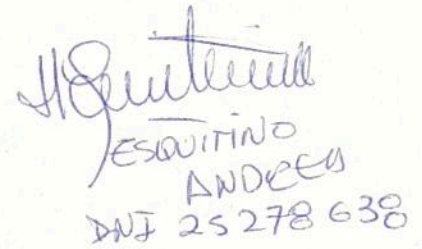 ESQUITINO
ANDREA
DNI 25278638